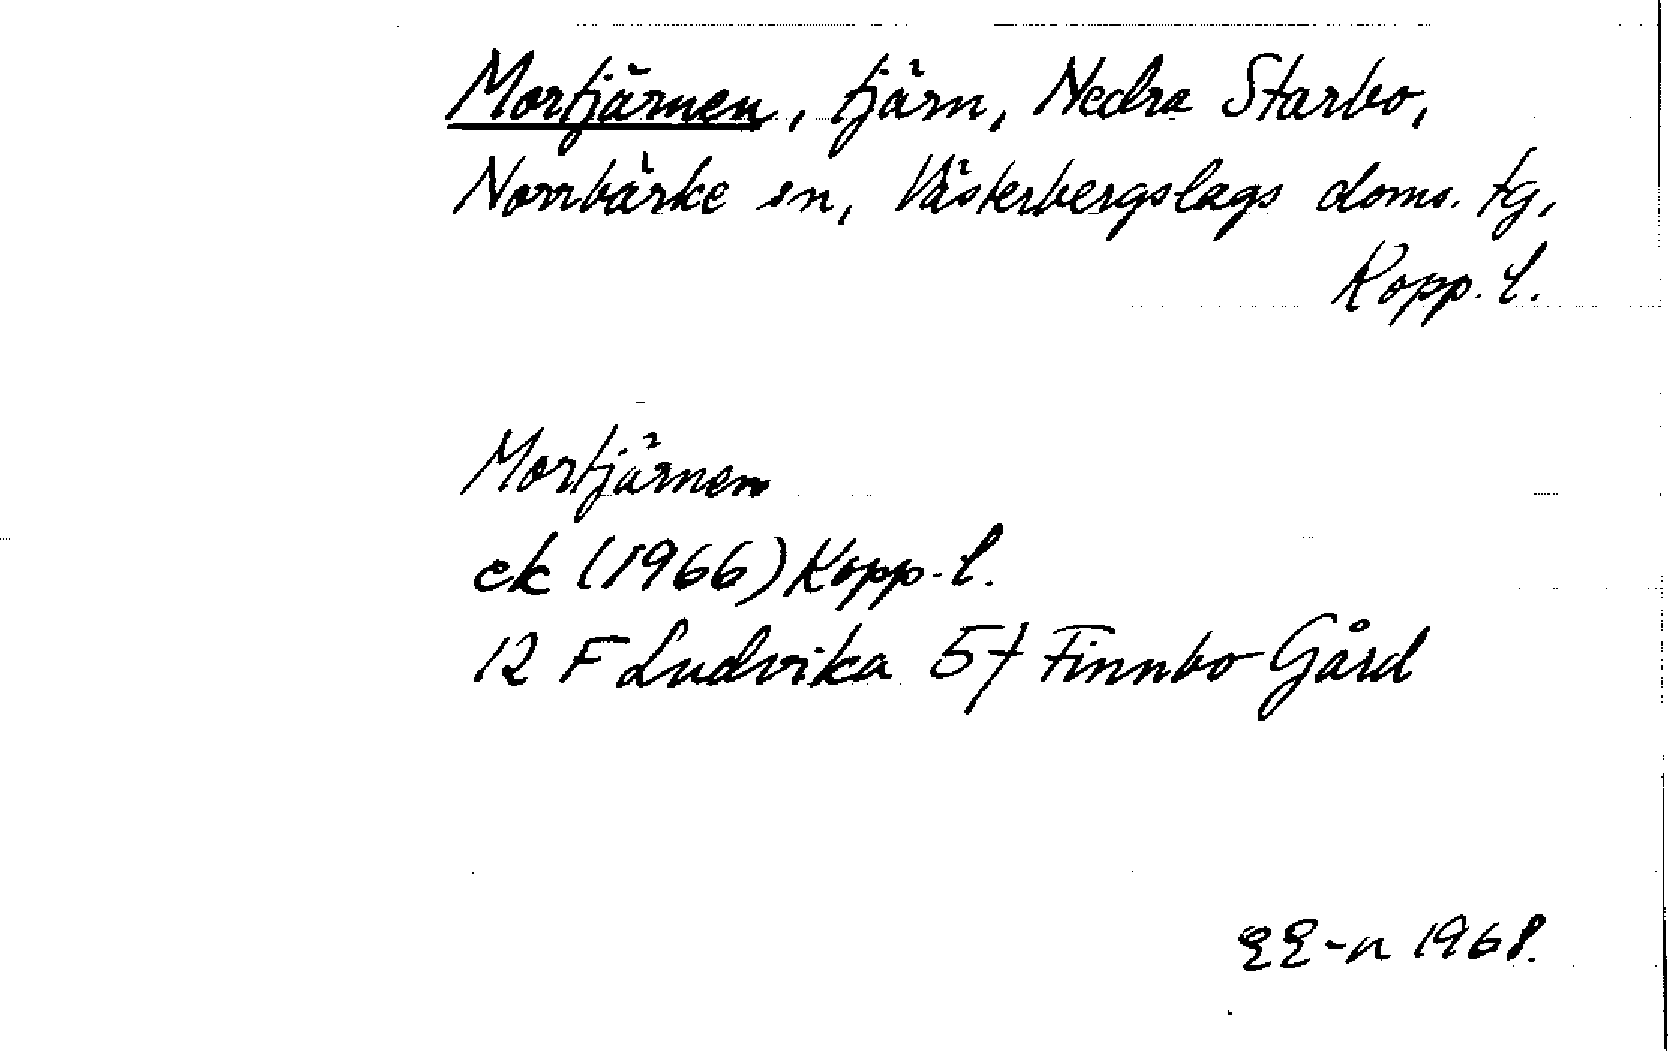 Mortjärnen, tjärn, Nedra Starbo,
Norrbärke sn, Västerbergslags doms. tg,
Kopp. l.
Mortjärnen
ek (1966) Kopp. l.
12 F Ludvika 5f Finnbo Gård
EE-n 1968.